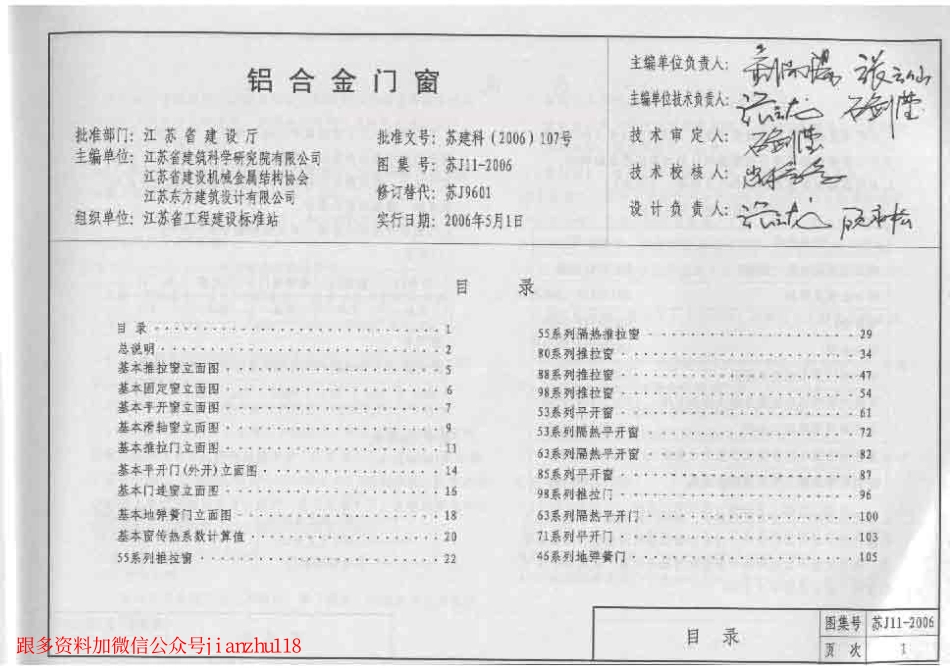 铝合金门窗
批准部门：江苏省建设厅
主编单位：江苏省建筑科学研究院有限公司
江苏省建设机械金属结构协会
江苏东方建筑设计有限公司
组织单位：江苏省工程建设标准站
批准文号：苏建科(2006)107号
图集号：苏J11-2006
修订替代：苏J9601
实行日期：2006年5月1日
主编单位负责人：
主编单位技术负责人：
技术审定人：
技术校核人：
设计负责人：
目录
目录 1
总说明 2
基本推拉窗立面图 5
基本固定窗立面图 6
基本平开窗立面图 7
基本滑轴窗立面图 9
基本推拉门立面图 11
基本平开门(外开)立面图 14
基本门连窗立面图 16
基本地弹簧门立面图 18
基本窗传热系数计算值 20
55系列推拉窗 22
55系列隔热推拉窗 29
80系列推拉窗 34
88系列推拉窗 47
98系列推拉窗 54
53系列平开窗 61
53系列隔热平开窗 72
63系列隔热平开窗 82
85系列平开窗 87
98系列推拉门 96
63系列隔热平开门 100
71系列平开门 103
46系列地弹簧门 105
目录
图集号 苏J11-2006
页次 1
跟多资料加微信公众号jianzhu118